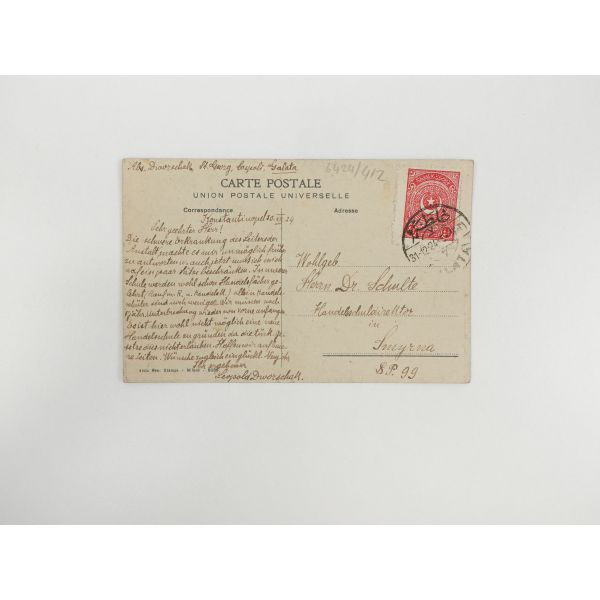 Abs. Dworschak, St. Georg, Galata
6424/412
CARTE POSTALE
UNION POSTALE UNIVERSELLE
Correspondance
Adresse
Konstantinopel 30. XII. 24
Sehr geehrter Herr!
Die schwere Erkrankung des Leiters der
Anstalt machte es mir unmöglich früher
zu antworten u. auch jetzt muß ich mich
auf ein paar Worte beschränken. In unserer
Schule werden wohl schon Handelsfächer ge-
lehrt, (kauf. R. u. Handelsk.) allein Handels-
schüler sind noch wenige. Wir müssen nach
7 jähr. Unterbrechung wieder von vorne anfangen.
Es ist hier wohl nicht möglich eine neue
Handelsschule zu gründen da die türk. Ge-
setze dies nicht erlauben. Hoffen wir auf bessere
Zeiten. Wünsche zugleich ein glückl. Neujahr
Ihr ergebener
Leopold Dworschak.
Wohlgeb
Herrn Dr. Schulte
Handelsschuldirektor
in
Smyrna
S.P. 99
31-12-24